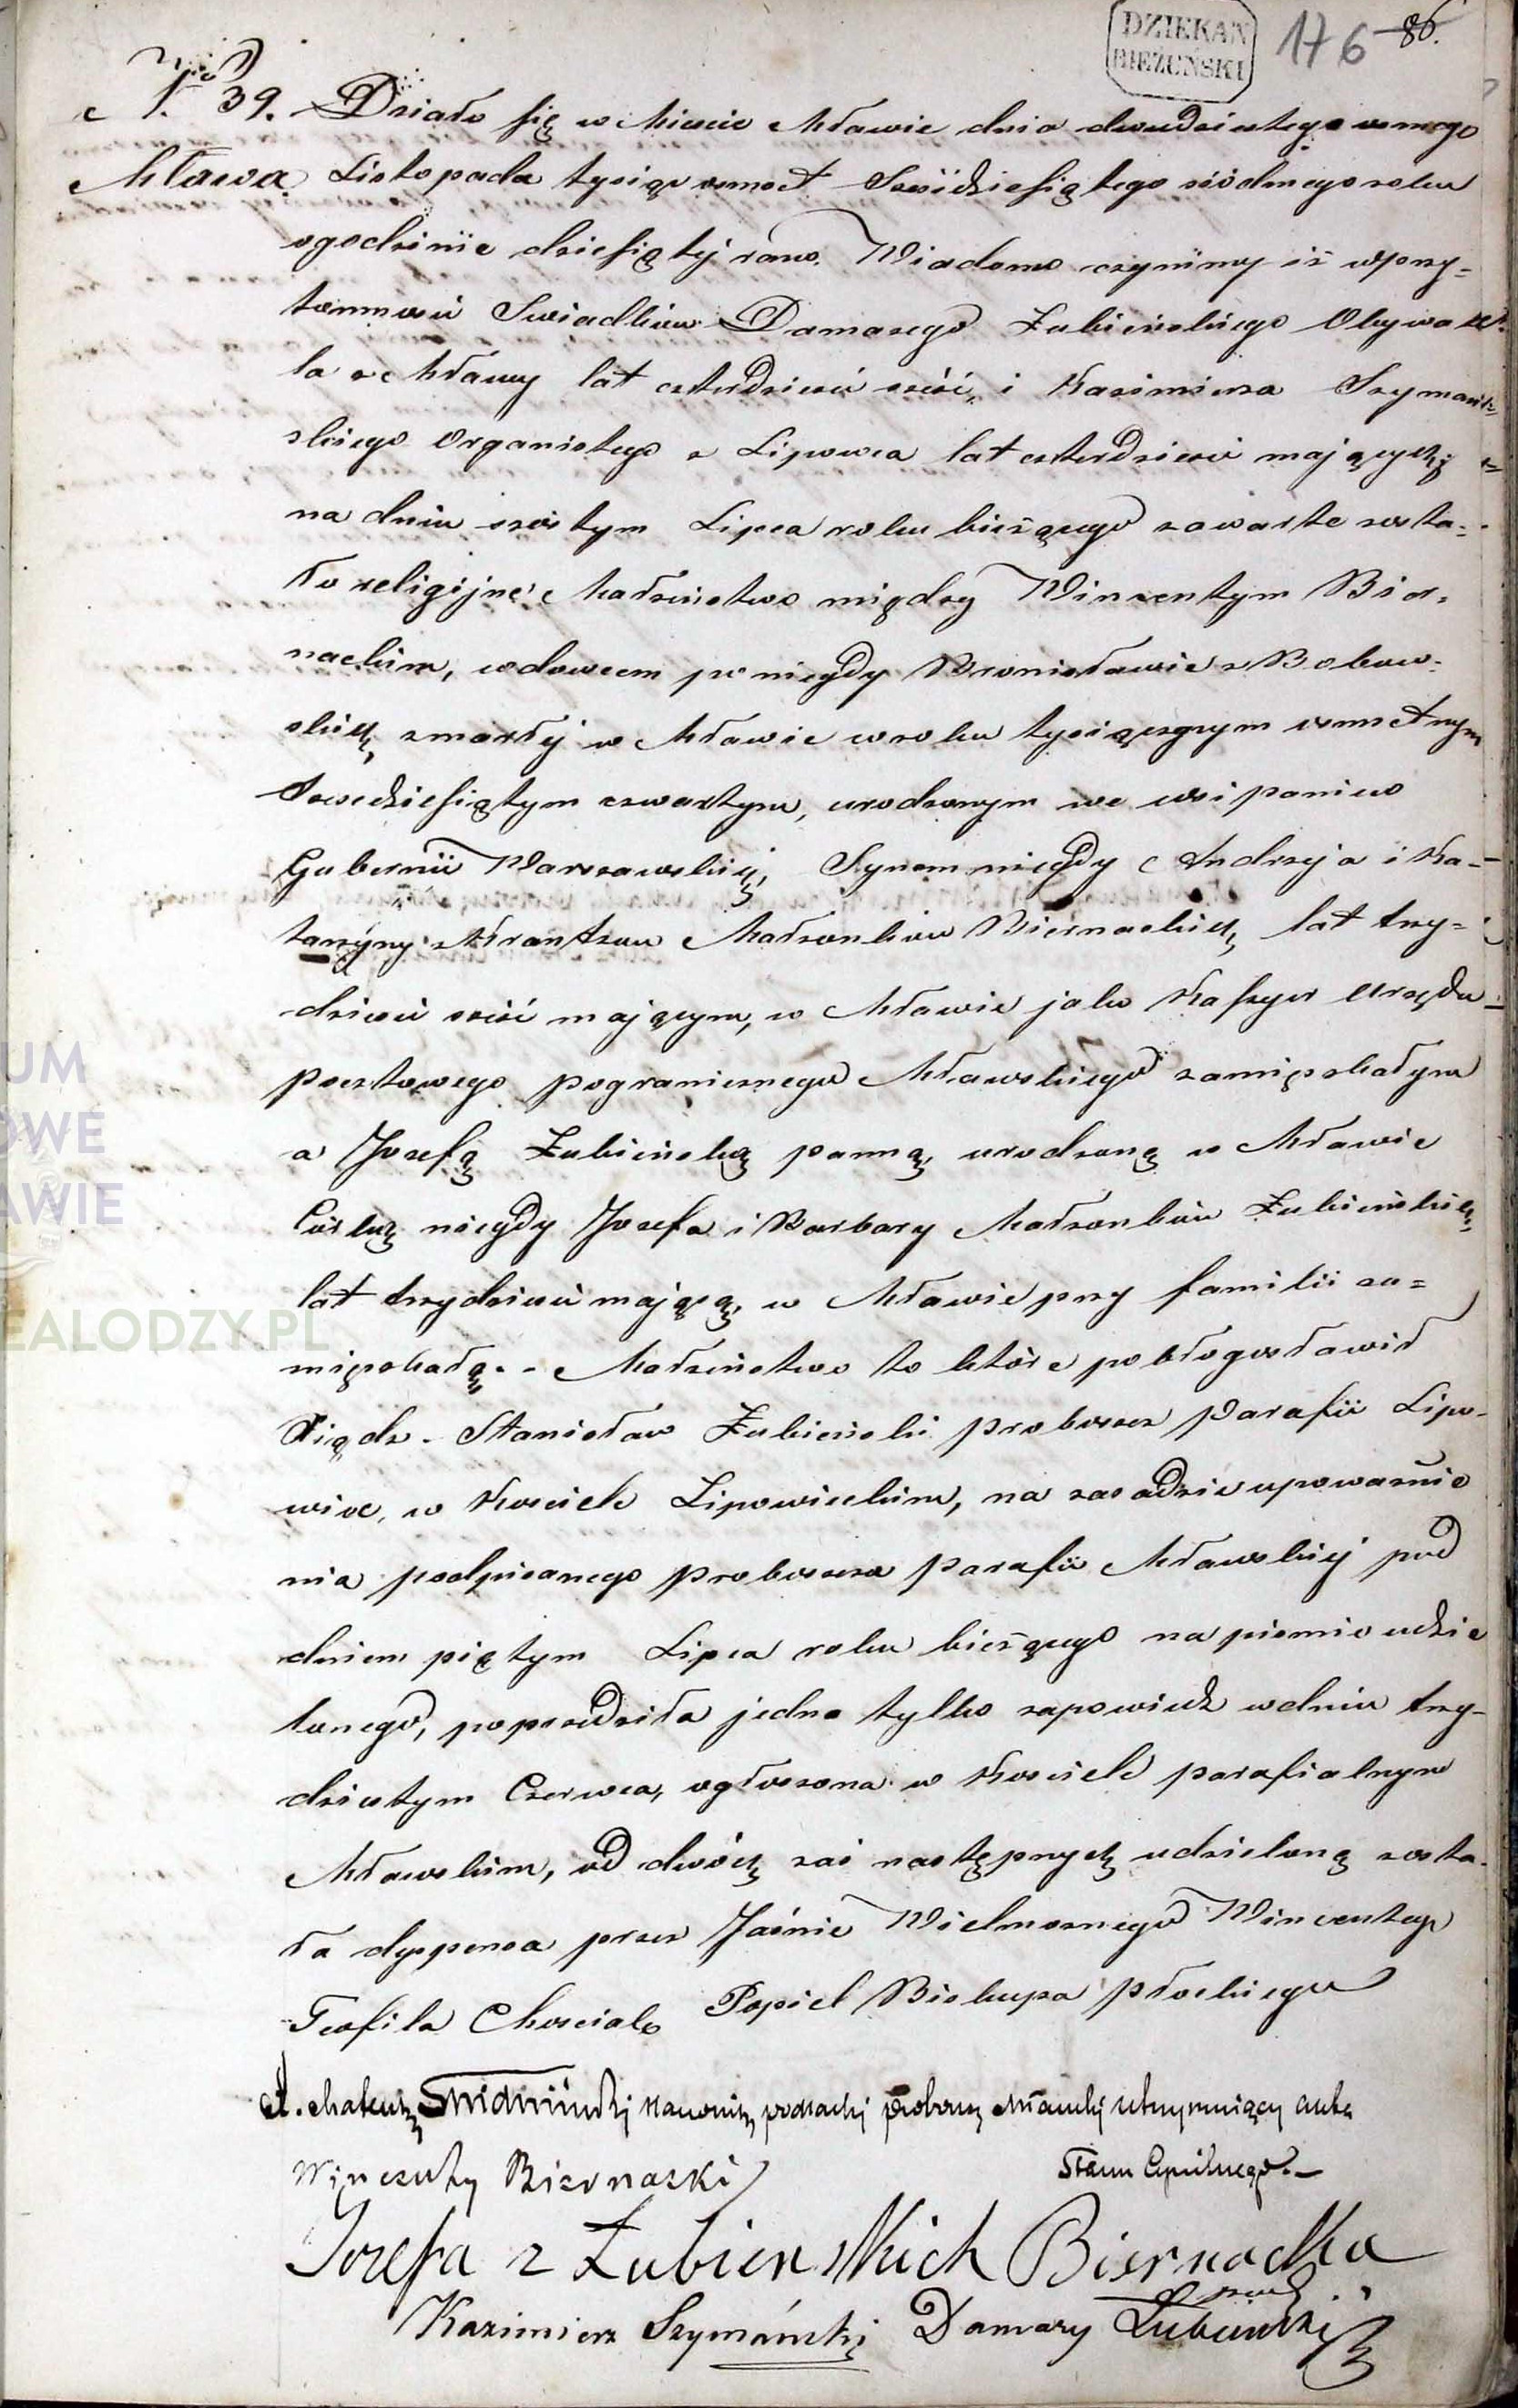 DZIEKAN
BIEŻUŃSKI
176 86.
N. 39. Działo się w Mieście Mławie dnia dwudziestego osmego
Mława Listopada tysiąc osmset Sześćdziesiątego siódmego roku
o godzinie dziesiątej rano. Wiadomo czynimy iż w przy=
tomności Swiadków Damazego Łubieńskiego Obywate=
la z Mławy lat czterdzieści sześć, i Kazimierza Szymań=
skiego Organistego z Lipowca lat czterdzieści mających
na dniu szóstym Lipca roku bieżącego zawarte zosta=
ło religijne Małżeństwo między Wincentym Bier=
nackim, wdowcem po niegdy Bronisławie z Bobow=
skich, zmarłej w Mławie w roku tysiącznym osmsetnym
Sześćdziesiątym czwartym, urodzonym we wsi paniewo
Gubernii Warszawskiej, Synem niegdy Andrzeja i Ka=
tarzyny z Krantzow Małżonków Biernackich, lat trzy=
dzieści sześć mającym, w Mławie jako Kassyer Urzędu
pocztowego pogranicznego Mławskiego zamięszkałym
a Jozefą Łubieńską panną, urodzoną w Mławie
Córką niegdy Jozefa i Barbary Małżonków Łubieńskich,
lat trzydzieści mającą, w Mławie przy familii za=
mięszkałą. - Małżeństwo to które pobłogosławił
Xiądz Stanisław Łubieński proboszcz Parafii Lipo-
wiec, w Kościele Lipowieckim, na zasadzie upoważnie
nia podpisanego proboszcza Parafii Mławskiej pod
dniem piętym Lipca roku bieżącego na piśmie udzie
lonego, poprzedziła jedna tylko zapowiedź w dniu trzy-
dziestym Czerwca, ogłoszona w Kościele parafialnym
Mławskim, od dwóch zaś następnych udzieloną zosta-
ła dyspensa przez Jaśnie Wielmożnego Wincentego
Teofila Chosciak Popiel Biskupa płockiego
X. Mateusz Kanonik proboszcz Mławski utrzymujący Akta
Stanu Cywilnego. -
Wincenty Biernacki
Jozefa z Łubienskich Biernacka
Kazimierz Szymański Damazy Łubieński
UM
OWE
AWIE
EALODZY.PL